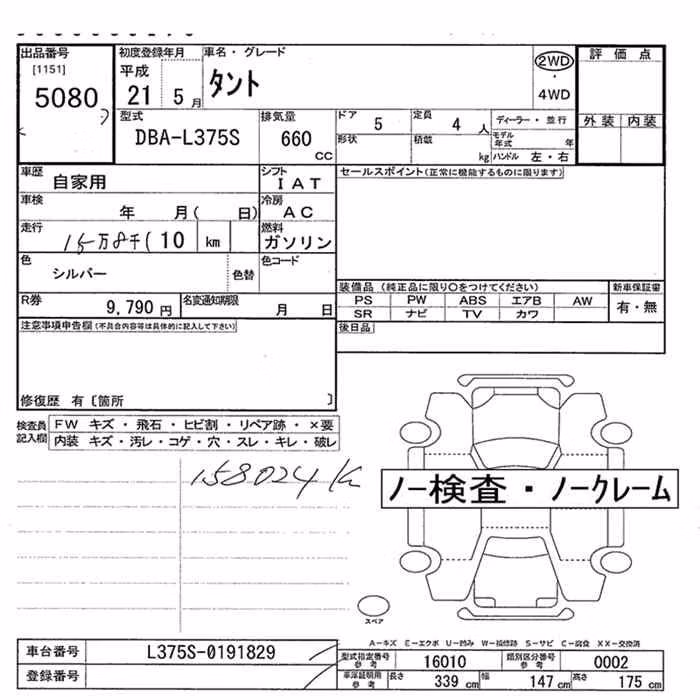 出品番号 初度登録年月 車名・グレード 評価点
[1151] 平成 タント 2WD
5080 21 5月 ・4WD
型式 排気量 ドア 5 定員 4人 ディーラー・並行 外装 内装
DBA-L375S 660 CC 形状 積載 kg モデル年式 年
ハンドル 左・右
車歴 自家用 シフト IAT セールスポイント(正常に機能するものに限ります)
車検 年 月( 日) 冷房 AC
走行 15万8千( 10 km 燃料 ガソリン
色 シルバー 色替 色コード
装備品(純正品に限り○をつけてください) 新車保証書
R券 9,790円 名変通知期限 月 日 PS PW ABS エアB AW 有・無
SR ナビ TV カワ
注意事項申告欄(不具合内容等は具体的に記入して下さい) 後日品
修復歴 有〔箇所 〕
検査員記入欄 FW キズ・飛石・ヒビ割・リペア跡・×要
内装 キズ・汚レ・コゲ・穴・スレ・キレ・破レ
158024 K
ノー検査・ノークレーム
スペア
A-キズ E-エクボ U-凹み W-補修跡 S-サビ C-腐食 XX-交換済
車台番号 L375S-0191829 型式指定番号参考 16010 類別区分番号参考 0002
登録番号 車庫証明用参考 長さ 339cm 幅 147cm 高さ 175cm